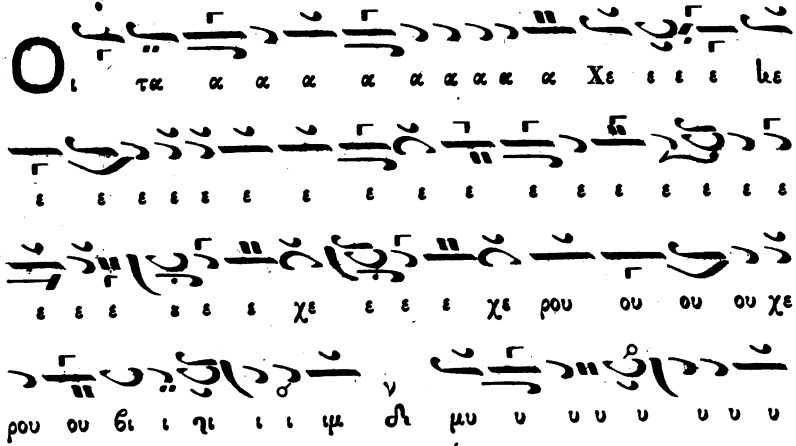 Οι τα α α α α α α α α α Χε ε ε ε κε
ε ε ε ε ε ε ε ε ε ε ε ε ε ε ε ε ε
ε ε ε ε ε ε χε ε ε ε χε ρου ου ου ου χε
ρου ου βι ι ηι ι ι ιμ ν μυ υ υ υ υ υ υ υ